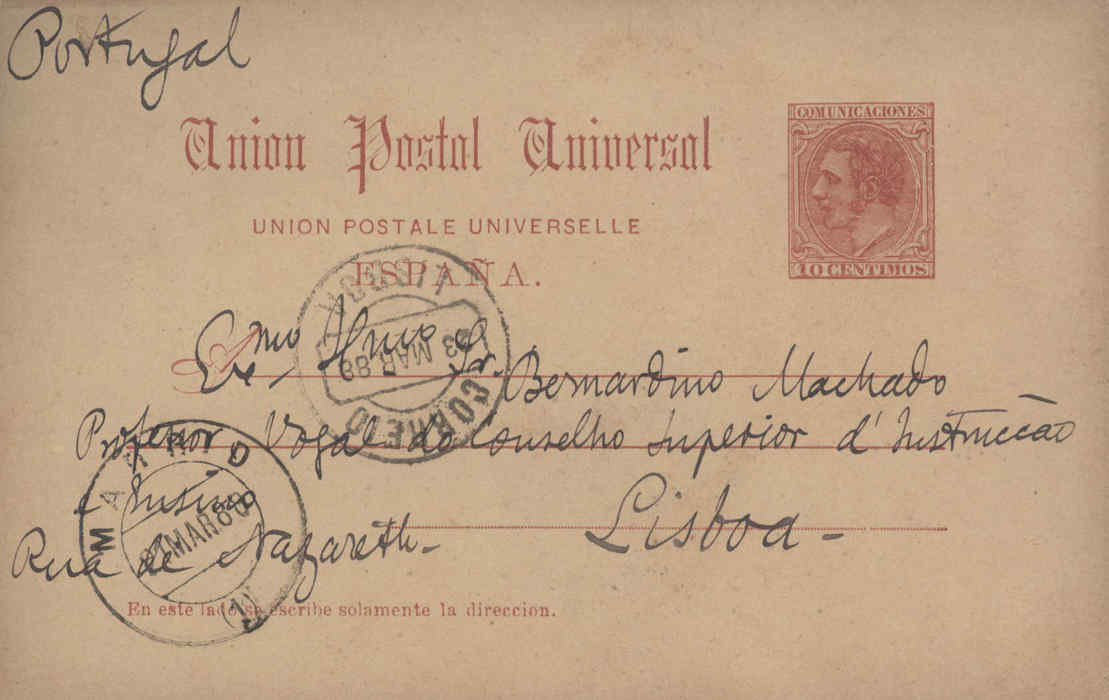 Portugal
Union Postal Universal
COMUNICACIONES
10 CENTIMOS
UNION POSTALE UNIVERSELLE
ESPAÑA.
LISBOA
23 MAR 88
CORREIO
Exmo Illmo Sr. Bernardino Machado
Professor Vogal do Conselho Superior d'Instrucção
e Ensino
Lisboa -
Rua de Nazareth -
MADRID
MAR 88
(1)
En este lado se escribe solamente la direccion.